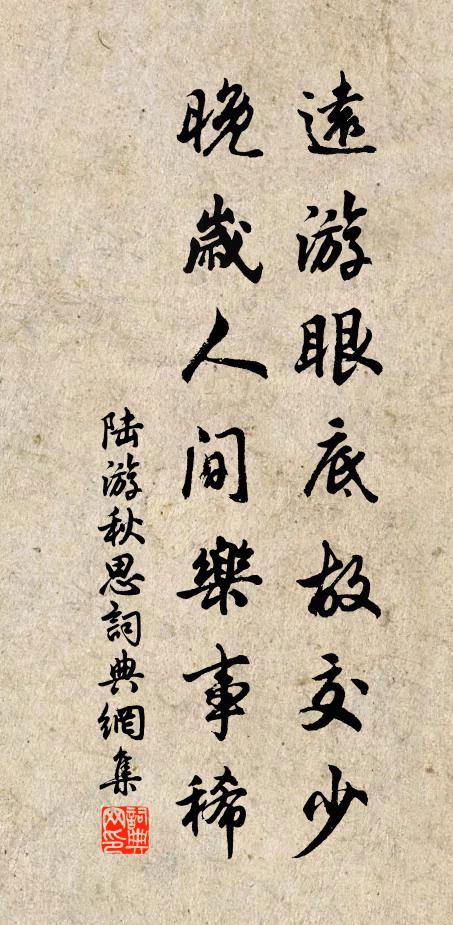 遠游眼底故交少
晚歲人間樂事稀
陆游秋思詞典網集
詞典网印